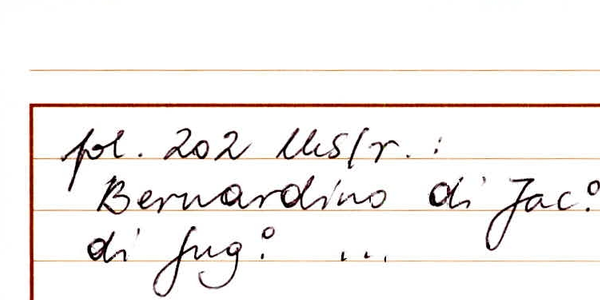 fol. 202 Ms/r. :
Bernardino di Jac:º
di Jug:º ...